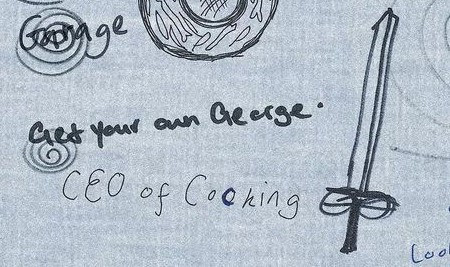 Garage
Get your own George.
CEO of Cooking